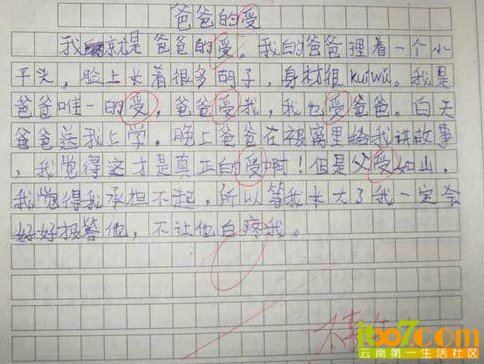 爸爸的受
我就是爸爸的受。我的爸爸理着一个小
平头，脸上长着很多胡子，身材很kuiwu。我是
爸爸唯一的受，爸爸受我，我也受爸爸。白天
爸爸送我上学。晚上爸爸在被窝里给我讲故事
，我觉得这才是真正的受啊！但是父受如山，
我觉得我承担不起，所以等我长大了我一定会
好好报答他，不让他白疼我。
1007com
云南第一生活社区